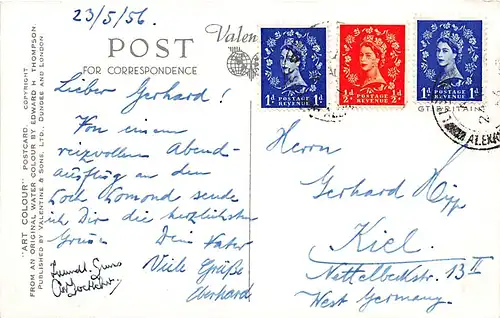 23/5/56.
Valen
POST
FOR CORRESPONDENCE
"ART COLOUR" POSTCARD. COPYRIGHT
FROM AN ORIGINAL WATER COLOUR BY EDWARD H. THOMPSON
PUBLISHED BY VALENTINE & SONS, LTD., DUNDEE AND LONDON
Lieber Gerhard!
Von einem
reizvollen Abend-
ausflug an den
Loch Lomond sende
ich Dir die herzlichsten
Grüsse Dein Vater
Viele Grüße
Eberhard
freundl. Gruss
1D POSTAGE REVENUE 1D
½D POSTAGE REVENUE ½D
1D POSTAGE REVENUE 1D
GT. BRITAIN
ALEXA
Herrn
Gerhard Hipp
Kiel
Nettelbeckstr. 13 II
West Germany.